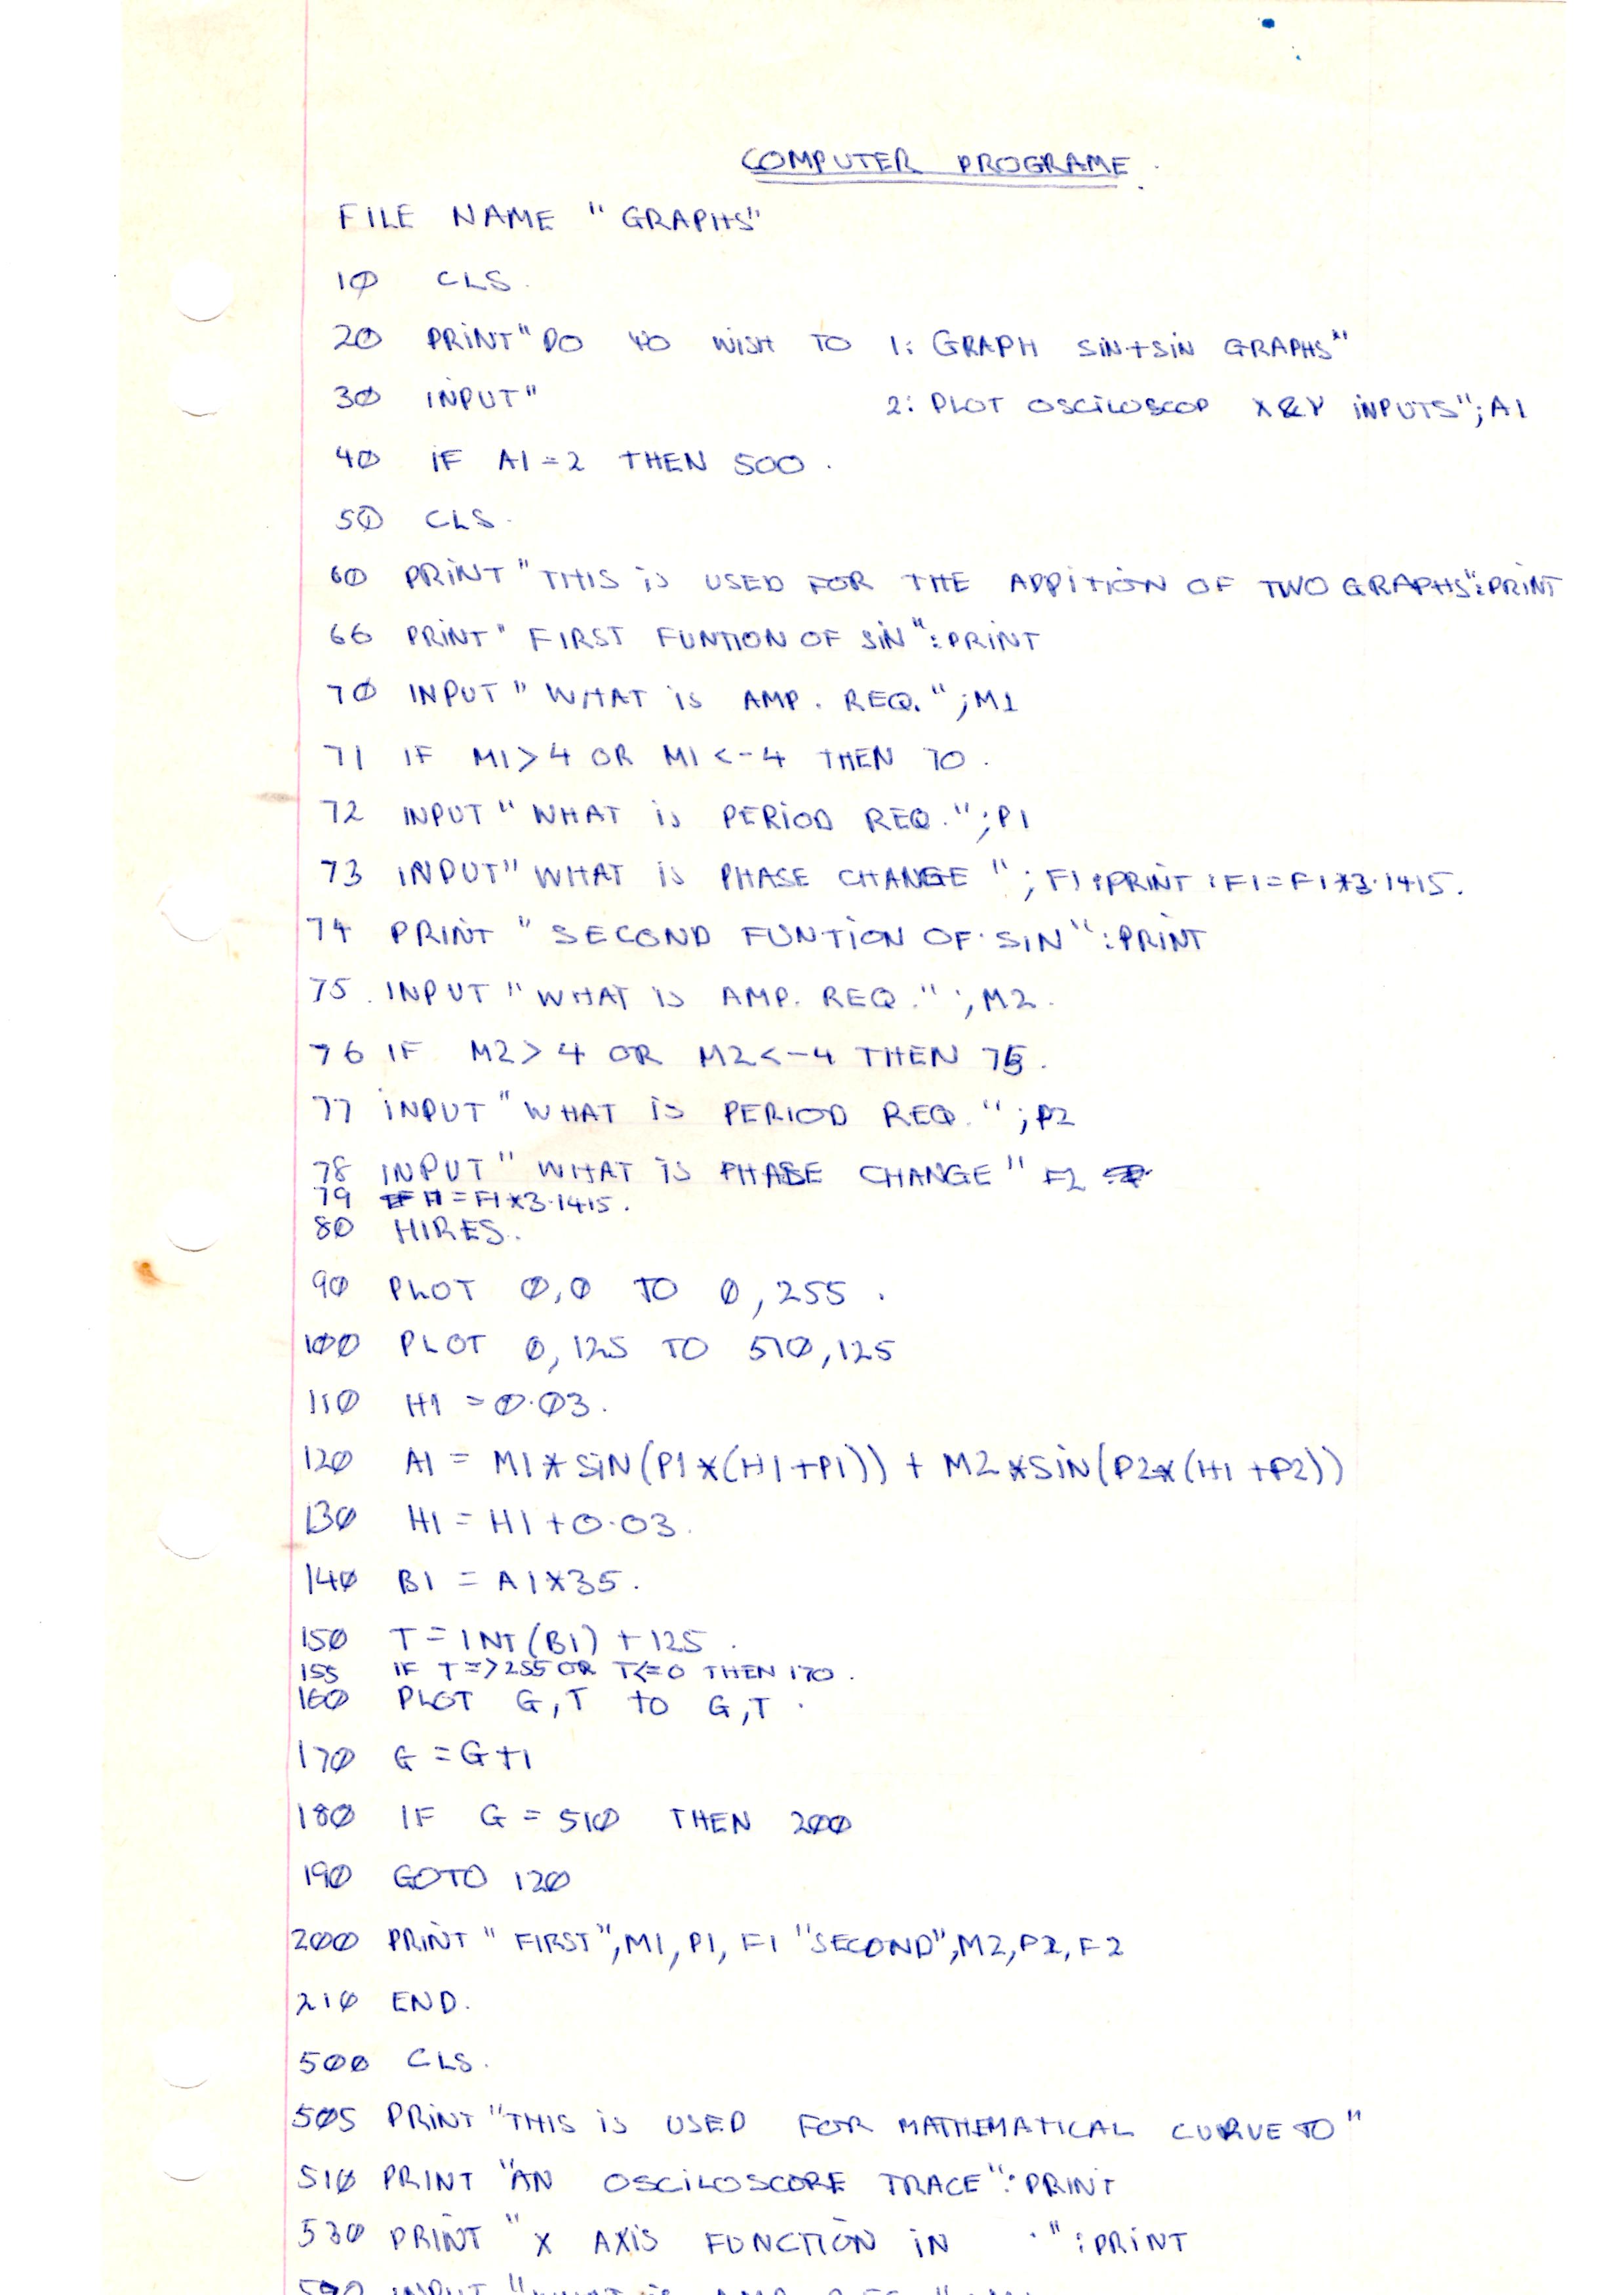 COMPUTER PROGRAME.
FILE NAME "GRAPHS"
10 CLS.
20 PRINT"DO YO WISH TO 1: GRAPH SIN+SIN GRAPHS"
30 INPUT" 2: PLOT OSCILOSCOP X&Y INPUTS";A1
40 IF A1=2 THEN 500.
50 CLS.
60 PRINT"THIS IS USED FOR THE ADDITION OF TWO GRAPHS":PRINT
66 PRINT" FIRST FUNTION OF SIN":PRINT
70 INPUT" WHAT IS AMP. REQ.";M1
71 IF M1>4 OR M1<-4 THEN 70.
72 INPUT"WHAT IS PERIOD REQ.";P1
73 INPUT"WHAT IS PHASE CHANGE ";F1:PRINT:F1=F1*3.1415.
74 PRINT "SECOND FUNTION OF SIN":PRINT
75. INPUT"WHAT IS AMP. REQ.";M2.
76 IF M2>4 OR M2<-4 THEN 75.
77 INPUT"WHAT IS PERIOD REQ.";P2
78 INPUT"WHAT IS PHASE CHANGE" F2
79 F1=F1*3.1415.
80 HIRES.
90 PLOT 0,0 TO 0,255.
100 PLOT 0,125 TO 510,125
110 H1=0.03.
120 A1 = M1*SIN(P1*(H1+P1)) + M2*SIN(P2*(H1+P2))
130 H1=H1+0.03.
140 B1 = A1*35.
150 T=INT(B1)+125.
155 IF T=>255 OR T<=0 THEN 170.
160 PLOT G,T to G,T.
170 G=G+1
180 IF G=510 THEN 200
190 GOTO 120
200 PRINT"FIRST",M1,P1,F1"SECOND",M2,P2,F2
210 END.
500 CLS.
505 PRINT"THIS IS USED FOR MATHEMATICAL CURVE TO"
510 PRINT "AN OSCILOSCOPE TRACE":PRINT
530 PRINT "X AXIS FUNCTION IN .":PRINT